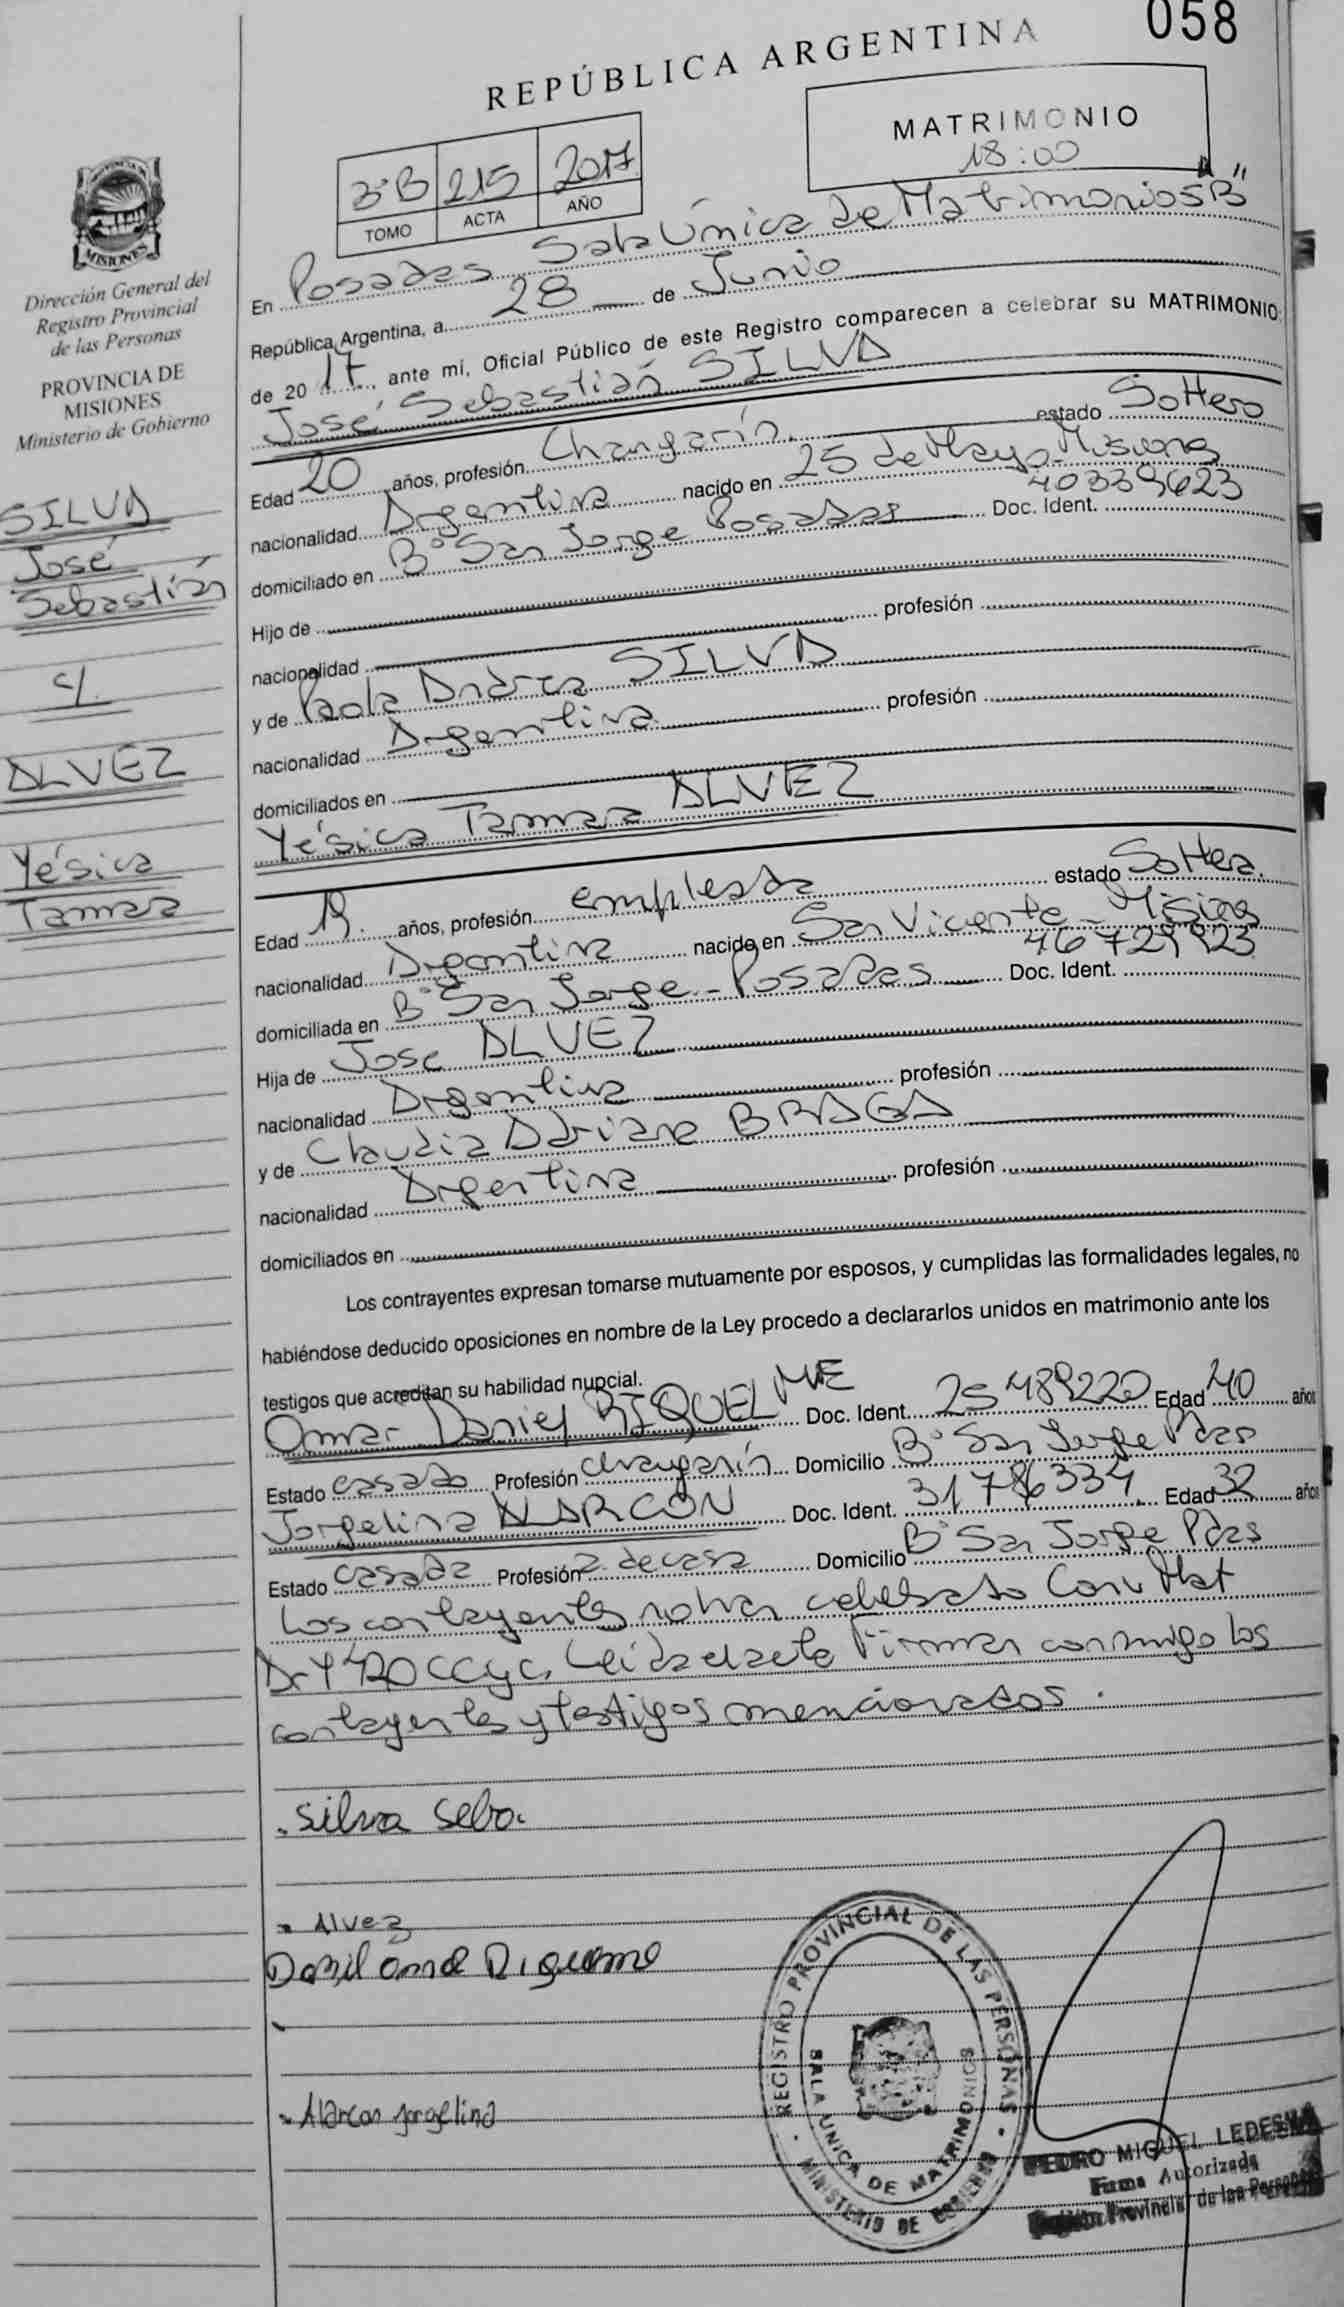 058
REPÚBLICA ARGENTINA
MATRIMONIO
18:00
3°B 215 2017
TOMO ACTA AÑO
MISIONES
Dirección General del
Registro Provincial
de las Personas
PROVINCIA DE
MISIONES
Ministerio de Gobierno
SILVA
José
Sebastián
c/.
ALVEZ
Yésica
Tamara
En Posadas Sala Única de Matrimonios "B"
República Argentina, a 28 de Junio
de 2017, ante mí, Oficial Público de este Registro comparecen a celebrar su MATRIMONIO:
José Sebastián SILVA
Edad 20 años, profesión Changarín estado Soltero
nacionalidad Argentina nacido en 25 de Mayo Misiones
domiciliado en B° San Jorge Posadas Doc. Ident. 40339623
Hijo de
nacionalidad profesión
y de Paola Andrea SILVA
nacionalidad Argentina profesión
domiciliados en
Yésica Tamara ALVEZ
Edad 19 años, profesión empleada estado Soltera.
nacionalidad Argentina nacida en San Vicente - Misiones
domiciliada en B° San Jorge - Posadas Doc. Ident. 46729923
Hija de Jose ALVEZ
nacionalidad Argentina profesión
y de Claudia Adriana BRAGA
nacionalidad Argentina profesión
domiciliados en
Los contrayentes expresan tomarse mutuamente por esposos, y cumplidas las formalidades legales, no
habiéndose deducido oposiciones en nombre de la Ley procedo a declararlos unidos en matrimonio ante los
testigos que acreditan su habilidad nupcial.
Omar Daniel RIQUELME Doc. Ident. 25489220 Edad 40 años
Estado casado Profesión Changarín Domicilio B° San Jorge Pdas
Jorgelina ALARCON Doc. Ident. 31786334 Edad 32 años
Estado casada Profesión a. de casa Domicilio B° San Jorge Pdas
Los contrayentes no han celebrado Conv Mat
Art 420 CCyC. Leída el acta Firman conmigo los
contrayentes y testigos mencionados.
. Silva Seba.
- Alvez
- Alarcon jorgelina
REGISTRO PROVINCIAL DE LAS PERSONAS
SALA ÚNICA DE MATRIMONIOS
MINISTERIO DE GOBIERNO
PEDRO MIGUEL LEDESMA
Firma Autorizada
Provincial de las Personas